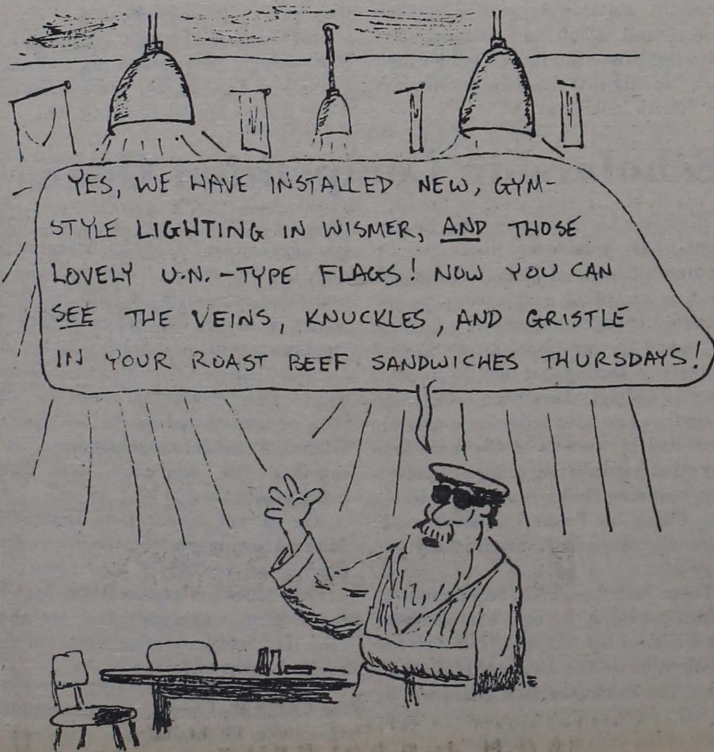 YES, WE HAVE INSTALLED NEW, GYM-
STYLE LIGHTING IN WISMER, AND THOSE
LOVELY U.N.-TYPE FLAGS! NOW YOU CAN
SEE THE VEINS, KNUCKLES, AND GRISTLE
IN YOUR ROAST BEEF SANDWICHES THURSDAYS!